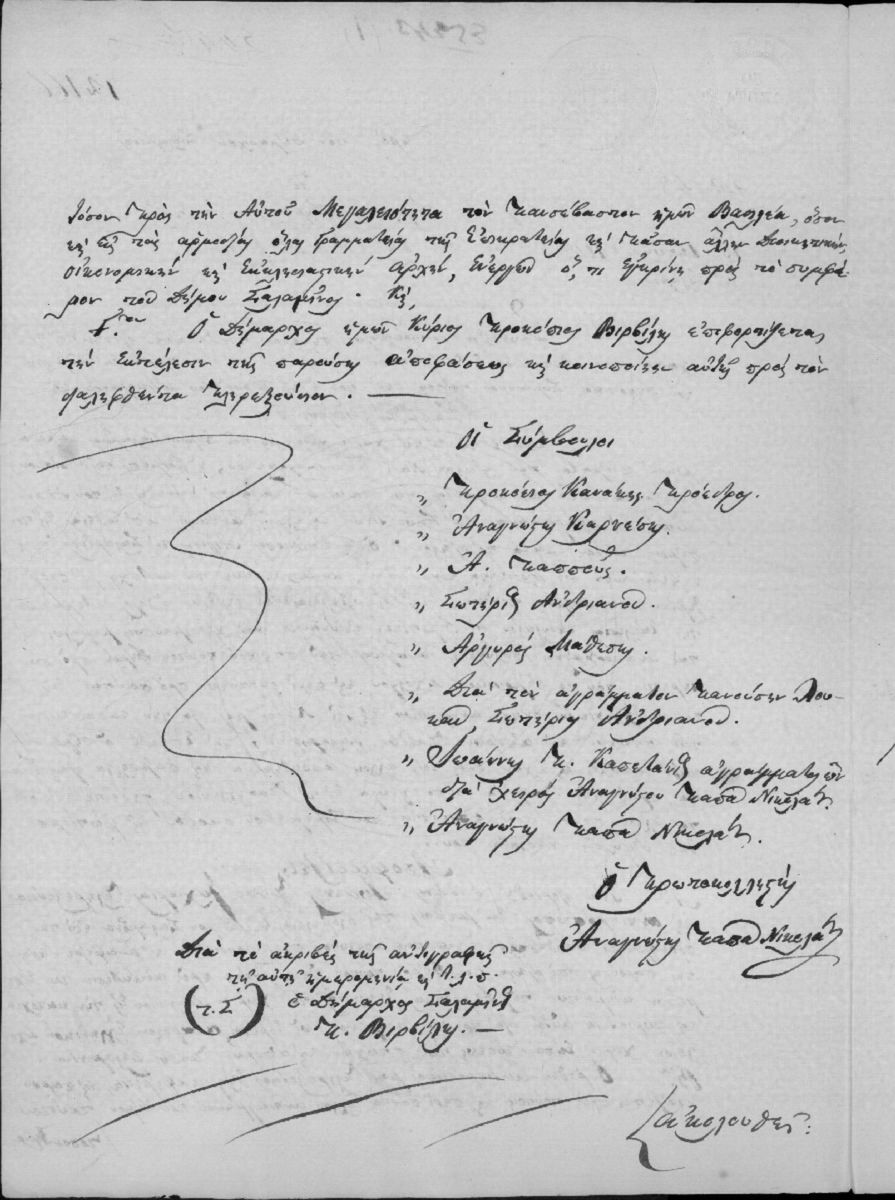 τόσον πρὸς τὴν Αὐτοῦ Μεγαλειότητα τὸν πανσέβαστον ἡμῶν Βασιλέα, ὅσον
καὶ εἰς τὰς ἁρμοδίας ὅλας Γραμματείας τῆς Ἐπικρατείας καὶ πᾶσαν ἄλλην Διοικητικήν,
οἰκονομικὴν καὶ Ἐκκλησιαστικὴν ἀρχήν, ἐνεργῶν ὅ,τι ἐγκρίνῃ πρὸς τὸ συμφέ-
ρον τοῦ Δήμου Σαλαμῖνος. Καὶ
Ὁ Δήμαρχος ἡμῶν Κύριος Προκόπιος Βιρβίλης ἐπιφορτίζεται
τὴν ἐκτέλεσιν τῆς παρούσης ἀποφάσεως καὶ κοινοποίησιν αὐτῆς πρὸς τὸν
διαληφθέντα πληρεξούσιον.
Οἱ Σύμβουλοι
„ Προκόπιος Κανάκης Πρόεδρος.
„ Ἀναγνώστης Καρνέσης.
„ Ἀ. Παππᾶς.
„ Σωτήριος Ἀνδριανοῦ.
„ Ἀργυρός Μαθέσης.
„ Διὰ τὸν ἀγράμματον Κανούσην Λου-
κᾶν Σωτήριος Ἀνδριανοῦ.
„ Ἰωάννης Π. Καπετάνιος ἀγράμματος ὢν
διὰ χειρὸς Ἀναγνώστου Παπᾶ Νικολάου
„ Ἀναγνώστης Παπᾶ Νικολάου.
Ὁ Πρωτοκολλιστής
Ἀναγνώστης Παπᾶ Νικολάου
Διὰ τὸ ἀκριβὲς τῆς ἀντιγραφῆς
τῇ αὐτῇ ἡμερομηνίᾳ
(τ.Σ) ὁ Δήμαρχος Σαλαμῖνος
Π. Βιρβίλης. —
ἀκολουθεῖ: